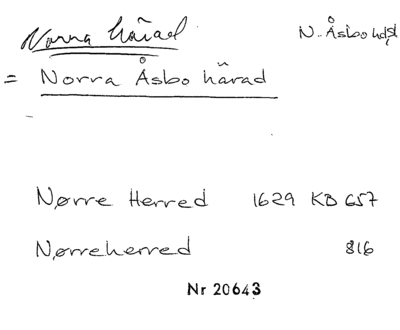 Norra härad
N. Åsbo hd
= Norra Åsbo härad
Nørre Herred 1629 KB 657
Nørreherred 816
Nr 20643